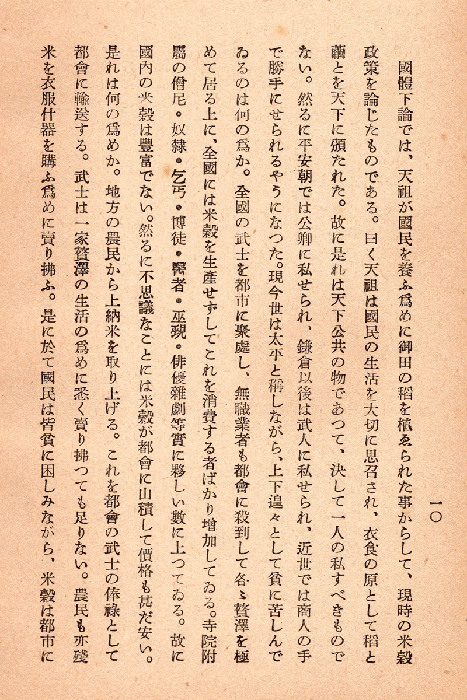 一〇
國體下論では、天祖が國民を養ふ爲めに御田の稻を植ゑられた事からして、現時の米穀
政策を論じたものである。曰く天祖は國民の生活を大切に思召され、衣食の原として稻と
繭とを天下に頒たれた。故に是れは天下公共の物であつて、決して一人の私すべきもので
ない。然るに平安朝では公卿に私せられ、鎌倉以後は武人に私せられ、近世では商人の手
で勝手にせられるやうになつた。現今世は太平と稱しながら、上下遑々として貧に苦しんで
ゐるのは何の爲か。全國の武士を都市に聚處し、無職業者も都會に殺到して各〻贅澤を極
めて居る上に、全國には米穀を生產せずしてこれを消費する者ばかり增加してゐる。寺院附
屬の僧尼・奴隸・乞丐・博徒・醫者・巫覡・俳優雜劇等實に夥しい數に上つてゐる。故に
國內の米穀は豐富でない。然るに不思議なことには米穀が都會に山積して價格も甚だ安い。
是れは何の爲めか。地方の農民から上納米を取り上げる。これを都會の武士の俸祿として
都會に輸送する。武士は一家贅澤の生活の爲めに悉く賣り拂つても足りない。農民も亦殘
米を衣服什器を購ふ爲めに賣り拂ふ。是に於て國民は皆貧に困しみながら、米穀は都市に